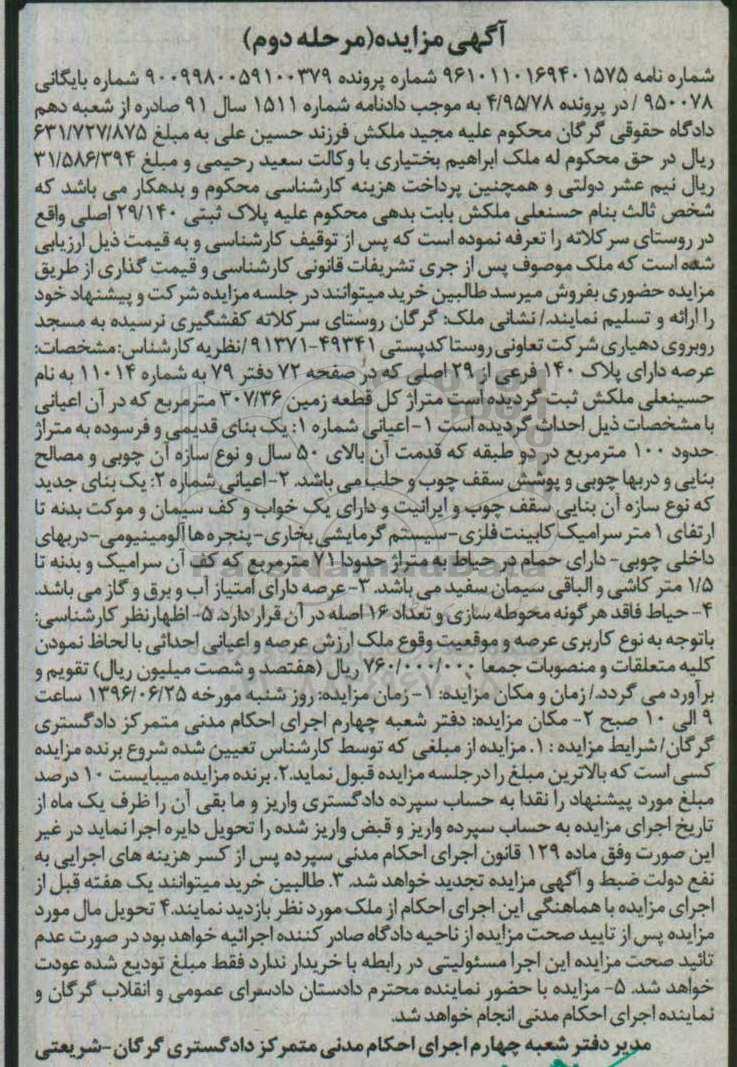 آگهی مزایده(مرحله دوم)
شماره نامه ۹۶۱۰۱۱۰۱۶۹۴۰۱۵۷۵ شماره پرونده ۹۰۰۹۹۸۰۰۵۹۱۰۰۳۷۹ شماره بایگانی
۹۵۰۰۷۸ / در پرونده ۴/۹۵/۷۸ به موجب دادنامه شماره ۱۵۱۱ سال ۹۱ صادره از شعبه دهم
دادگاه حقوقی گرگان محکوم علیه مجید ملکش فرزند حسین علی به مبلغ ۶۳۱/۷۲۷/۸۷۵
ریال در حق محکوم له ملک ابراهیم بختیاری با وکالت سعید رحیمی و مبلغ ۳۱/۵۸۶/۳۹۴
ریال نیم عشر دولتی و همچنین پرداخت هزینه کارشناسی محکوم و بدهکار می باشد که
شخص ثالث بنام حسنعلی ملکش بابت بدهی محکوم علیه پلاک ثبتی ۲۹/۱۴۰ اصلی واقع
در روستای سرکلاته را تعرفه نموده است که پس از توقیف کارشناسی و به قیمت ذیل ارزیابی
شده است که ملک موصوف پس از جری تشریفات قانونی کارشناسی و قیمت گذاری از طریق
مزایده حضوری بفروش میرسد طالبین خرید میتوانند در جلسه مزایده شرکت و پیشنهاد خود
را ارائه و تسلیم نمایند./ نشانی ملک: گرگان روستای سرکلاته کفشگیری نرسیده به مسجد
روبروی دهیاری شرکت تعاونی روستا کدپستی ۴۹۳۴۱-۹۱۳۷۱ /نظریه کارشناس:مشخصات:
عرصه دارای پلاک ۱۴۰ فرعی از ۲۹ اصلی که در صفحه ۷۲ دفتر ۷۹ به شماره ۱۱۰۱۴ به نام
حسینعلی ملکش ثبت گردیده است متراژ کل قطعه زمین ۳۰۷/۳۶ مترمربع که در آن اعیانی
با مشخصات ذیل احداث گردیده است ۱-اعیانی شماره ۱: یک بنای قدیمی و فرسوده به متراژ
حدود ۱۰۰ مترمربع در دو طبقه که قدمت آن بالای ۵۰ سال و نوع سازه آن چوبی و مصالح
بنایی و دربها چوبی و پوشش سقف چوب و حلب می باشد. ۲-اعیانی شماره ۲: یک بنای جدید
که نوع سازه آن بنایی سقف چوب و ایرانیت و دارای یک خواب و کف سیمان و موکت بدنه تا
ارتفای ۱ متر سرامیک کابینت فلزی-سیستم گرمایشی بخاری- پنجره ها آلومینیومی-دربهای
داخلی چوبی- دارای حمام در حیاط به متراژ حدودا ۷۱ مترمربع که کف آن سرامیک و بدنه تا
۱/۵ متر کاشی و الباقی سیمان سفید می باشد. ۳-عرصه دارای امتیاز آب و برق و گاز می باشد.
۴- حیاط فاقد هرگونه محوطه سازی و تعداد ۱۶ اصله در آن قرار دارد. ۵- اظهارنظر کارشناسی:
باتوجه به نوع کاربری عرصه و موقعیت وقوع ملک ارزش عرصه و اعیانی احداثی با لحاظ نمودن
کلیه متعلقات و منصوبات جمعا ۷۶۰/۰۰۰/۰۰۰ ریال (هفتصد و شصت میلیون ریال) تقویم و
برآورد می گردد./ زمان و مکان مزایده: ۱- زمان مزایده: روز شنبه مورخه ۱۳۹۶/۰۶/۲۵ ساعت
۹ الی ۱۰ صبح ۲- مکان مزایده: دفتر شعبه چهارم اجرای احکام مدنی متمرکز دادگستری
گرگان/ شرایط مزایده : ۱. مزایده از مبلغی که توسط کارشناس تعیین شده شروع برنده مزایده
کسی است که بالاترین مبلغ را درجلسه مزایده قبول نماید.۲. برنده مزایده میبایست ۱۰ درصد
مبلغ مورد پیشنهاد را نقدا به حساب سپرده دادگستری واریز و ما بقی آن را ظرف یک ماه از
تاریخ اجرای مزایده به حساب سپرده واریز و قبض واریز شده را تحویل دایره اجرا نماید در غیر
این صورت وفق ماده ۱۲۹ قانون اجرای احکام مدنی سپرده پس از کسر هزینه های اجرایی به
نفع دولت ضبط و آگهی مزایده تجدید خواهد شد. ۳. طالبین خرید میتوانند یک هفته قبل از
اجرای مزایده با هماهنگی این اجرای احکام از ملک مورد نظر بازدید نمایند.۴ تحویل مال مورد
مزایده پس از تایید صحت مزایده از ناحیه دادگاه صادر کننده اجرائیه خواهد بود در صورت عدم
تائید صحت مزایده این اجرا مسئولیتی در رابطه با خریدار ندارد فقط مبلغ تودیع شده عودت
خواهد شد. ۵- مزایده با حضور نماینده محترم دادستان دادسرای عمومی و انقلاب گرگان و
نماینده اجرای احکام مدنی انجام خواهد شد.
مدیر دفتر شعبه چهارم اجرای احکام مدنی متمرکز دادگستری گرگان-شریعتی